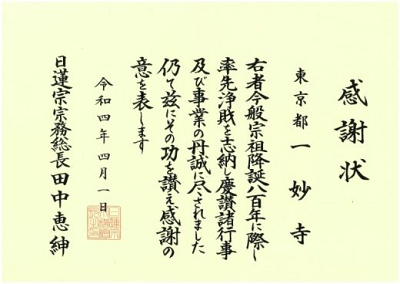 感謝状
東京都 一妙寺
右者今般宗祖降誕八百年に際し
率先浄財を志納し慶讃諸行事
及び事業の丹誠に尽されました
仍て茲にその功を讃え感謝の
意を表します
令和四年四月一日
日蓮宗宗務総長田中恵紳